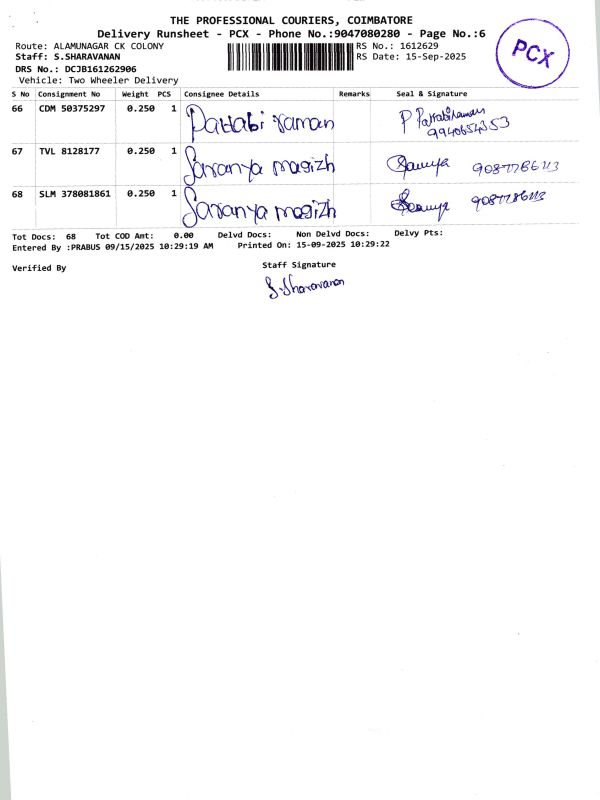 THE PROFESSIONAL COURIERS, COIMBATORE
Delivery Runsheet - PCX - Phone No.:9047080280 - Page No.:6
Route: ALAMUNAGAR CK COLONY RS No.: 1612629
Staff: S.SHARAVANAN RS Date: 15-Sep-2025
DRS No.: DCJB161262906
Vehicle: Two Wheeler Delivery
PCX
S No Consignment No Weight PCS Consignee Details Remarks Seal & Signature
66 CDM 50375297 0.250 1 Pattabi raman P Pattabiraman
9940654353
67 TVL 8128177 0.250 1 Saranya magizh
68 SLM 378081861 0.250 1 Saranya magizh
Tot Docs: 68 Tot COD Amt: 0.00 Delvd Docs: Non Delvd Docs: Delvy Pts:
Entered By :PRABUS 09/15/2025 10:29:19 AM Printed On: 15-09-2025 10:29:22
Verified By Staff Signature
S. Sharavanan